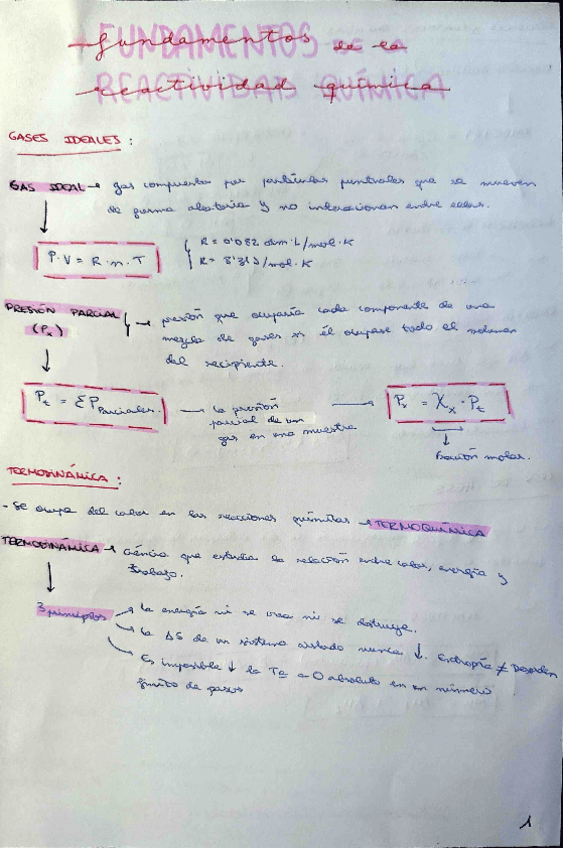 FUNDAMENTOS DE LA
REACTIVIDAD QUÍMICA
GASES IDEALES:
GAS IDEAL → gas compuesto por partículas puntuales que se mueven
de forma aleatoria y no interaccionan entre ellas.
P·V = R·n·T
R = 0'082 atm·L/mol·K
R = 8'31J/mol·K
PRESIÓN PARCIAL → presión que ocuparía cada componente de una
(Px) mezcla de gases si él ocupase todo el volumen
del recipiente.
Pt = ΣPParciales. → la presión → Px = Xx · Pt
parcial de un
gas en una muestra
Fracción molar.
TERMODINÁMICA:
- Se ocupa del calor en las reacciones químicas → TERMOQUÍMICA
TERMODINÁMICA → Ciencia que estudia la relación entre calor, energía y
trabajo.
3 principios → la energía ni se crea ni se destruye.
→ la ΔS de un sistema aislado nunca ↓. Entropía ≠ Desorden
→ Es imposible ↓ la Tª a 0 absoluto en un número
finito de pasos
1